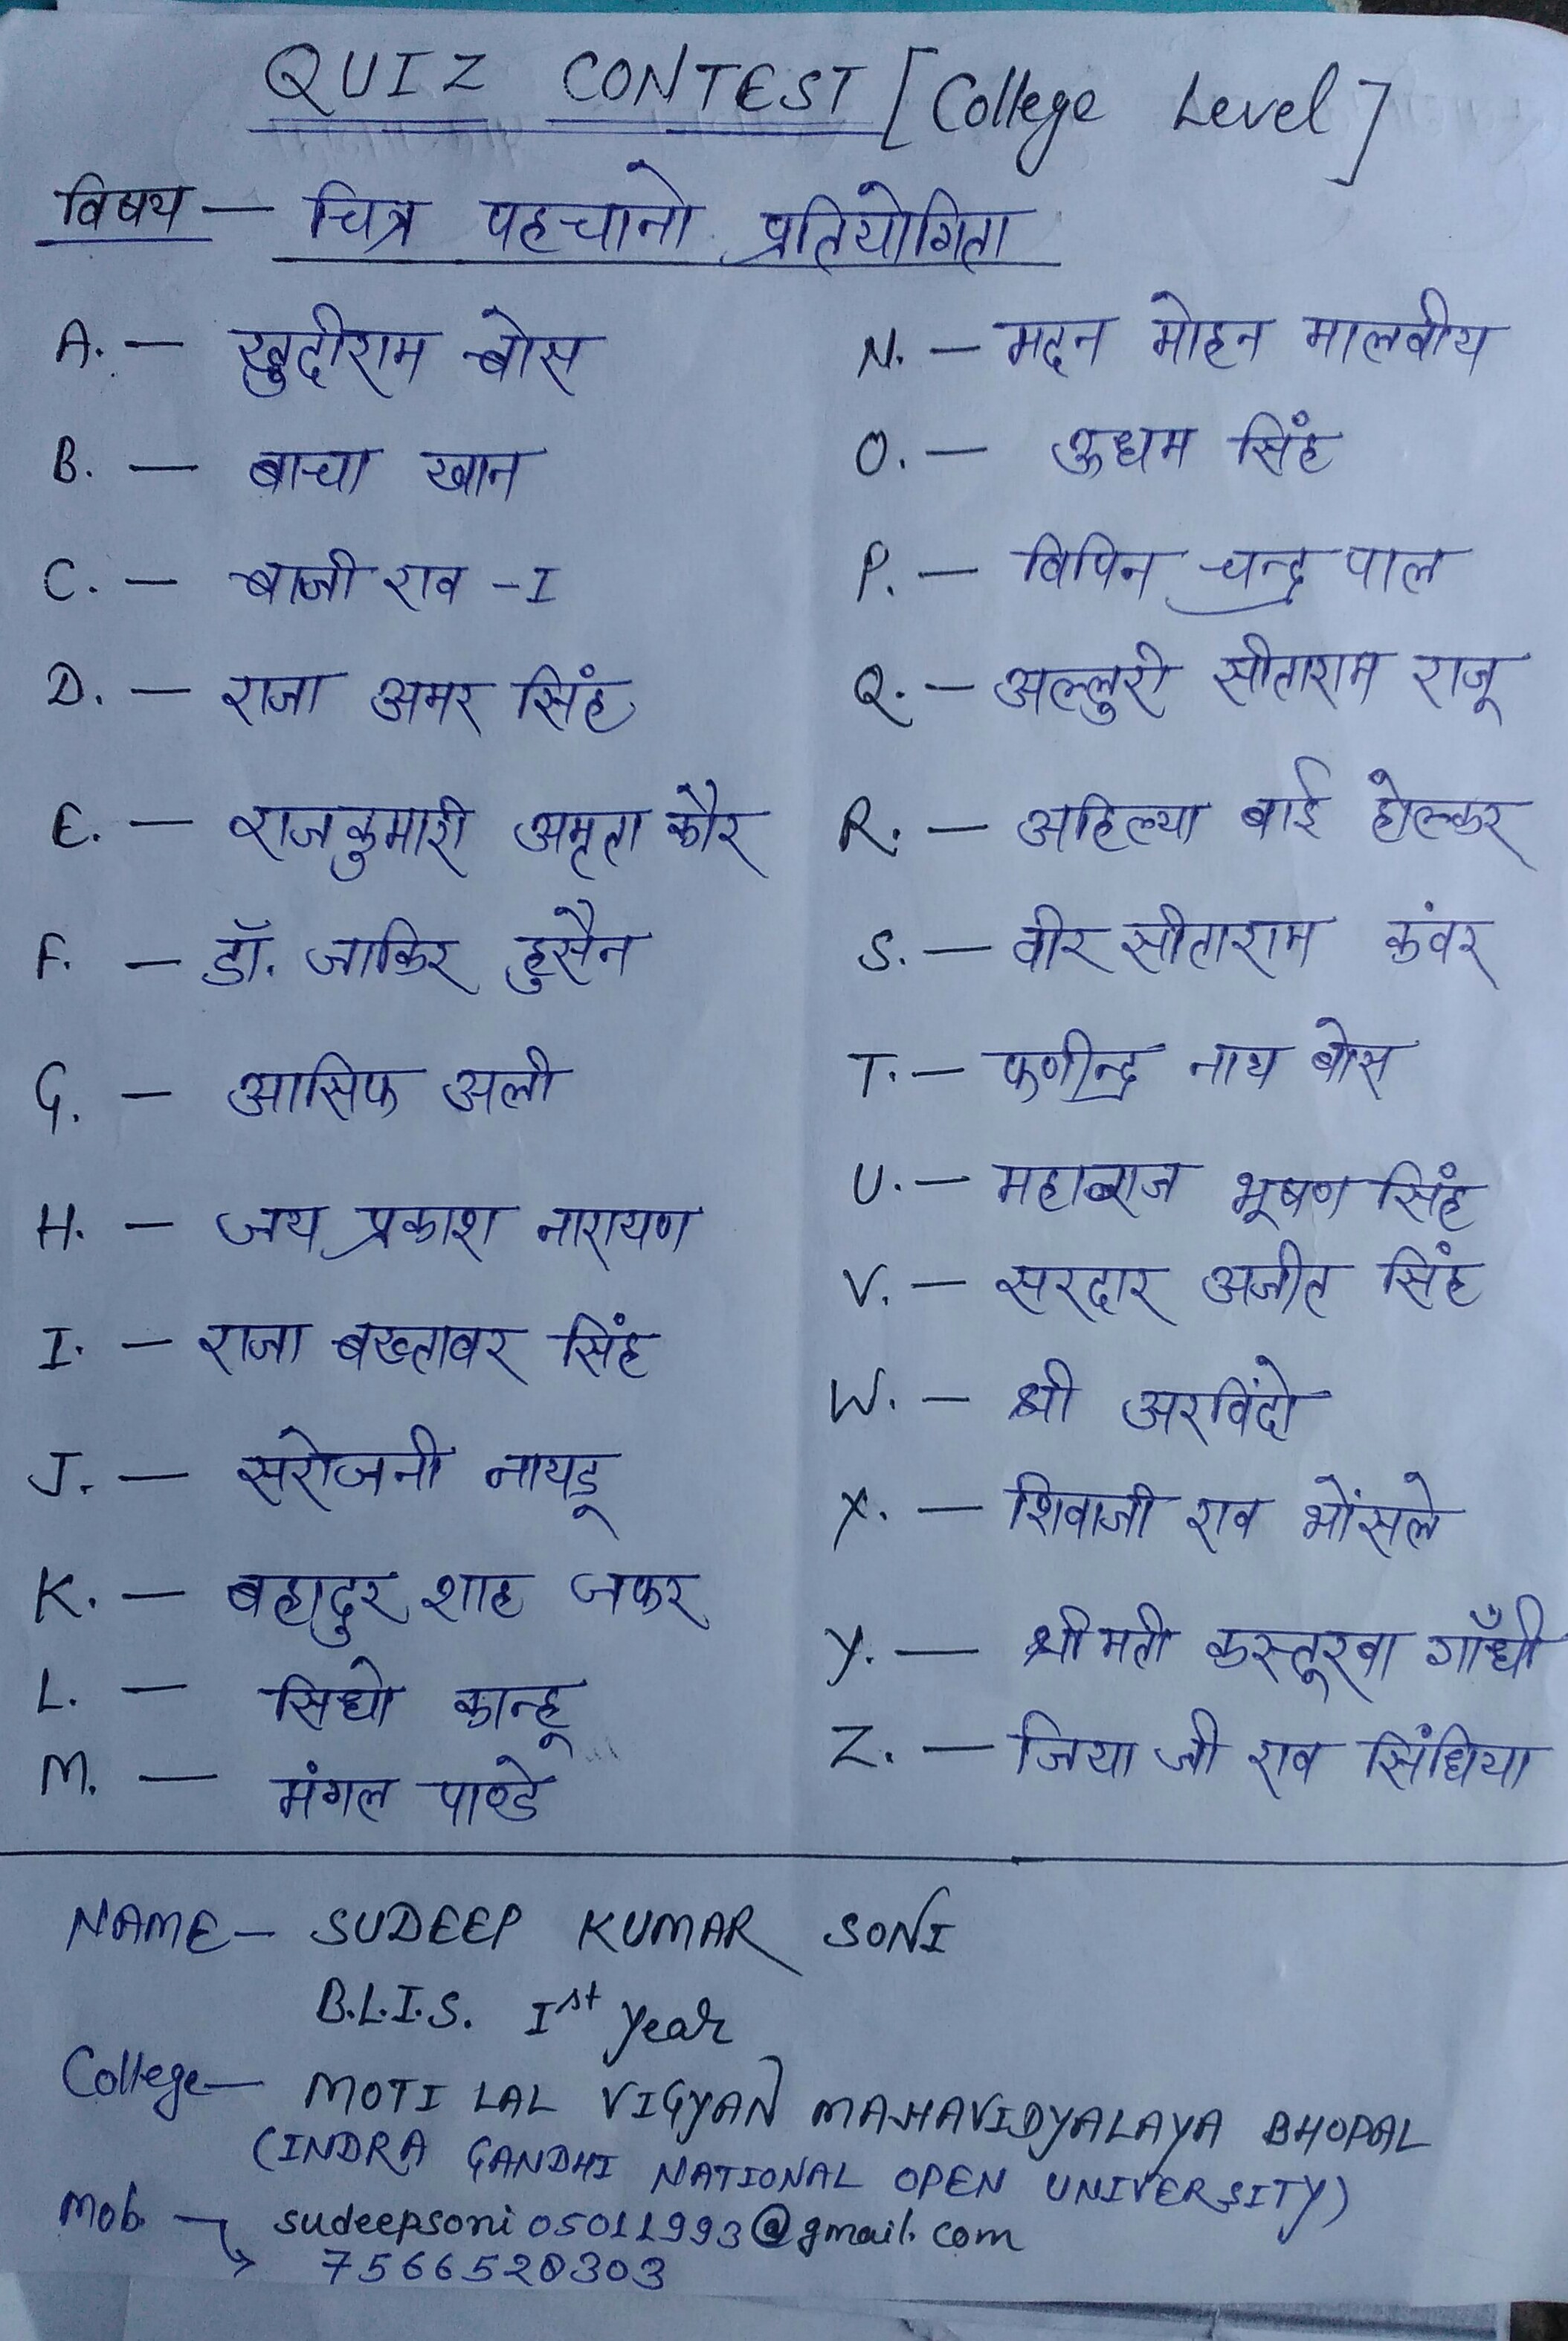 QUIZ CONTEST [College Level]
विषय — चित्र पहचानो प्रतियोगिता
A. — खुदीराम बोस
B. — बाचा खान
C. — बाजी राव - I
D. — राजा अमर सिंह
E. — राजकुमारी अमृता कौर
F. — डॉ. जाकिर हुसैन
G. — आसिफ अली
H. — जय प्रकाश नारायण
I. — राजा बख्तावर सिंह
J. — सरोजनी नायडू
K. — बहादुर शाह जफर
L. — सिधो कान्हू
M. — मंगल पाण्डे
N. — मदन मोहन मालवीय
O. — ऊधम सिंह
P. — विपिन चन्द्र पाल
Q. — अल्लुरी सीताराम राजू
R. — अहिल्या बाई होल्कर
S. — वीर सीताराम कंवर
T. — फणीन्द्र नाथ बोस
U. — महाराज भूषण सिंह
V. — सरदार अजीत सिंह
W. — श्री अरविंदो
X. — शिवाजी राव भोंसले
Y. — श्रीमती कस्तूरबा गाँधी
Z. — जिया जी राव सिंधिया
NAME — SUDEEP KUMAR SONI
B.L.I.S. Ist year
College — MOTI LAL VIGYAN MAHAVIDYALAYA BHOPAL
(INDRA GANDHI NATIONAL OPEN UNIVERSITY)
Mob. — sudeepsoni05011993@gmail.com
7566520303